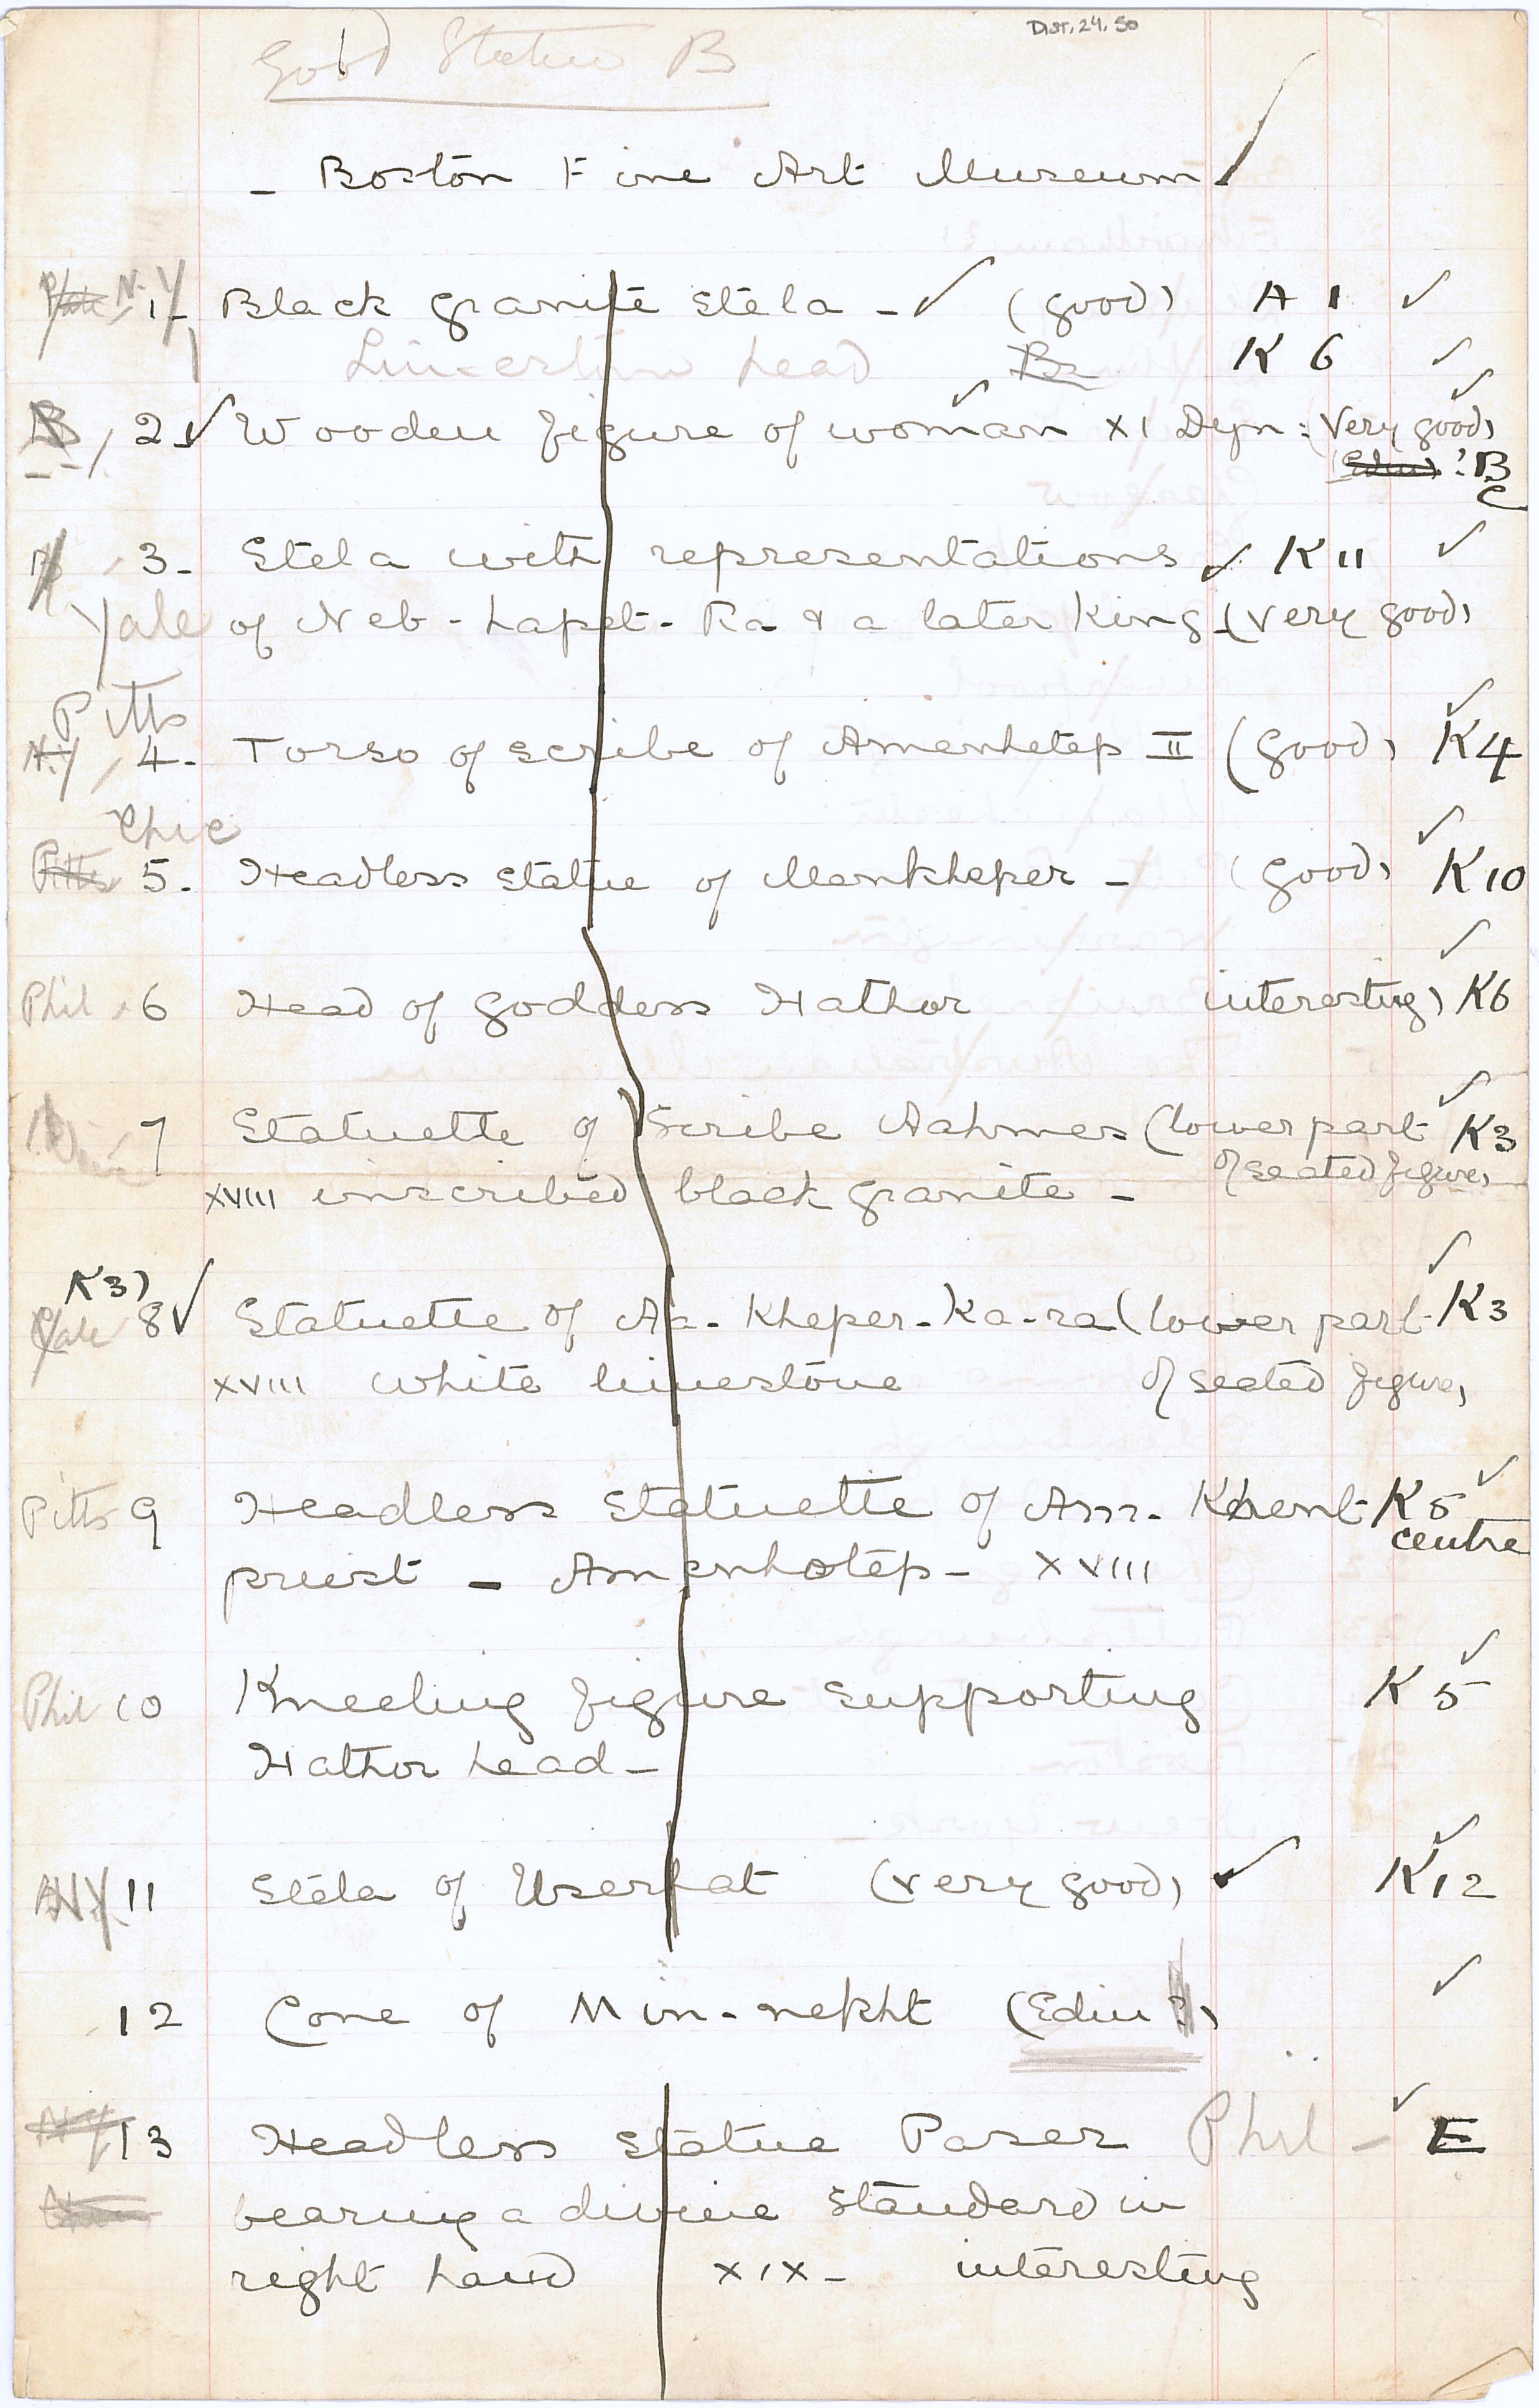 Dist. 24. 50
Good Statue B
- Boston Fine Art Museum
N.Y 1- Black granite Stela - (good) A 1
head B K 6
B 2 Wooden figure of woman XI Dyn: (Very good)
(Edin) ? B
C
3- Stela with representations K 11
Yale of Neb-hapet-Ra & a later King - (very good)
Pitts
N.Y 4- Torso of scribe of Amenhetep II (good) K4
Chic
Pitts 5- Headless statue of Menkheper - (good) K10
Phil 6 Head of goddess Hathor interesting) K6
7 Statuette of Scribe Aahmes (lower part K3
XVIII inscribed black granite - of seated figure)
K3)
Yale 8 Statuette of Aa-Kheper-Ka-ra (lower part K3
XVIII white limestone of seated figure)
Pitts 9 Headless Statuette of Am-Khent K5
centre
priest - Amenhotep - XVIII
Phil 10 Kneeling figure supporting K5
Hathor head -
NY 11 Stela of Userhat (very good) K12
12 Cone of Min-nekht (Edin ?)
NY 13 Headless statue Paser Phil - E
bearing a divine standard in
right hand XIX - interesting